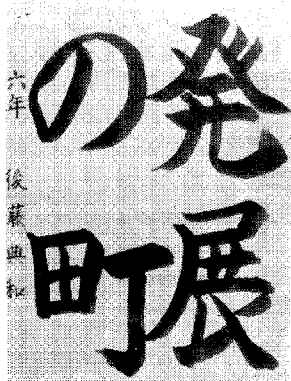 発展
の町
六年 後藤典和